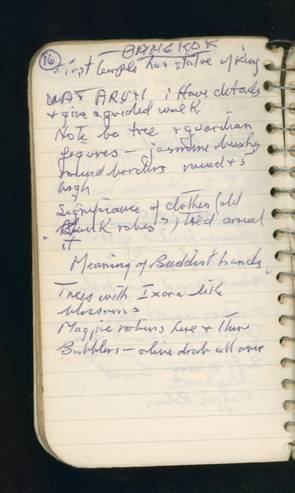 16 BANGKOK
First temple has statue of King
WAT ARUN ; Have details
& give a guided walk
Note bo tree & guardian
figures - jasmine bushes
round borders round & 5
high
Significance of clothes (old
monk robes?) tied around
it
Meaning of Buddist hands
Trees with Ixora like
blossoms
Magpie robins here & there
Babblers - olive drab all over